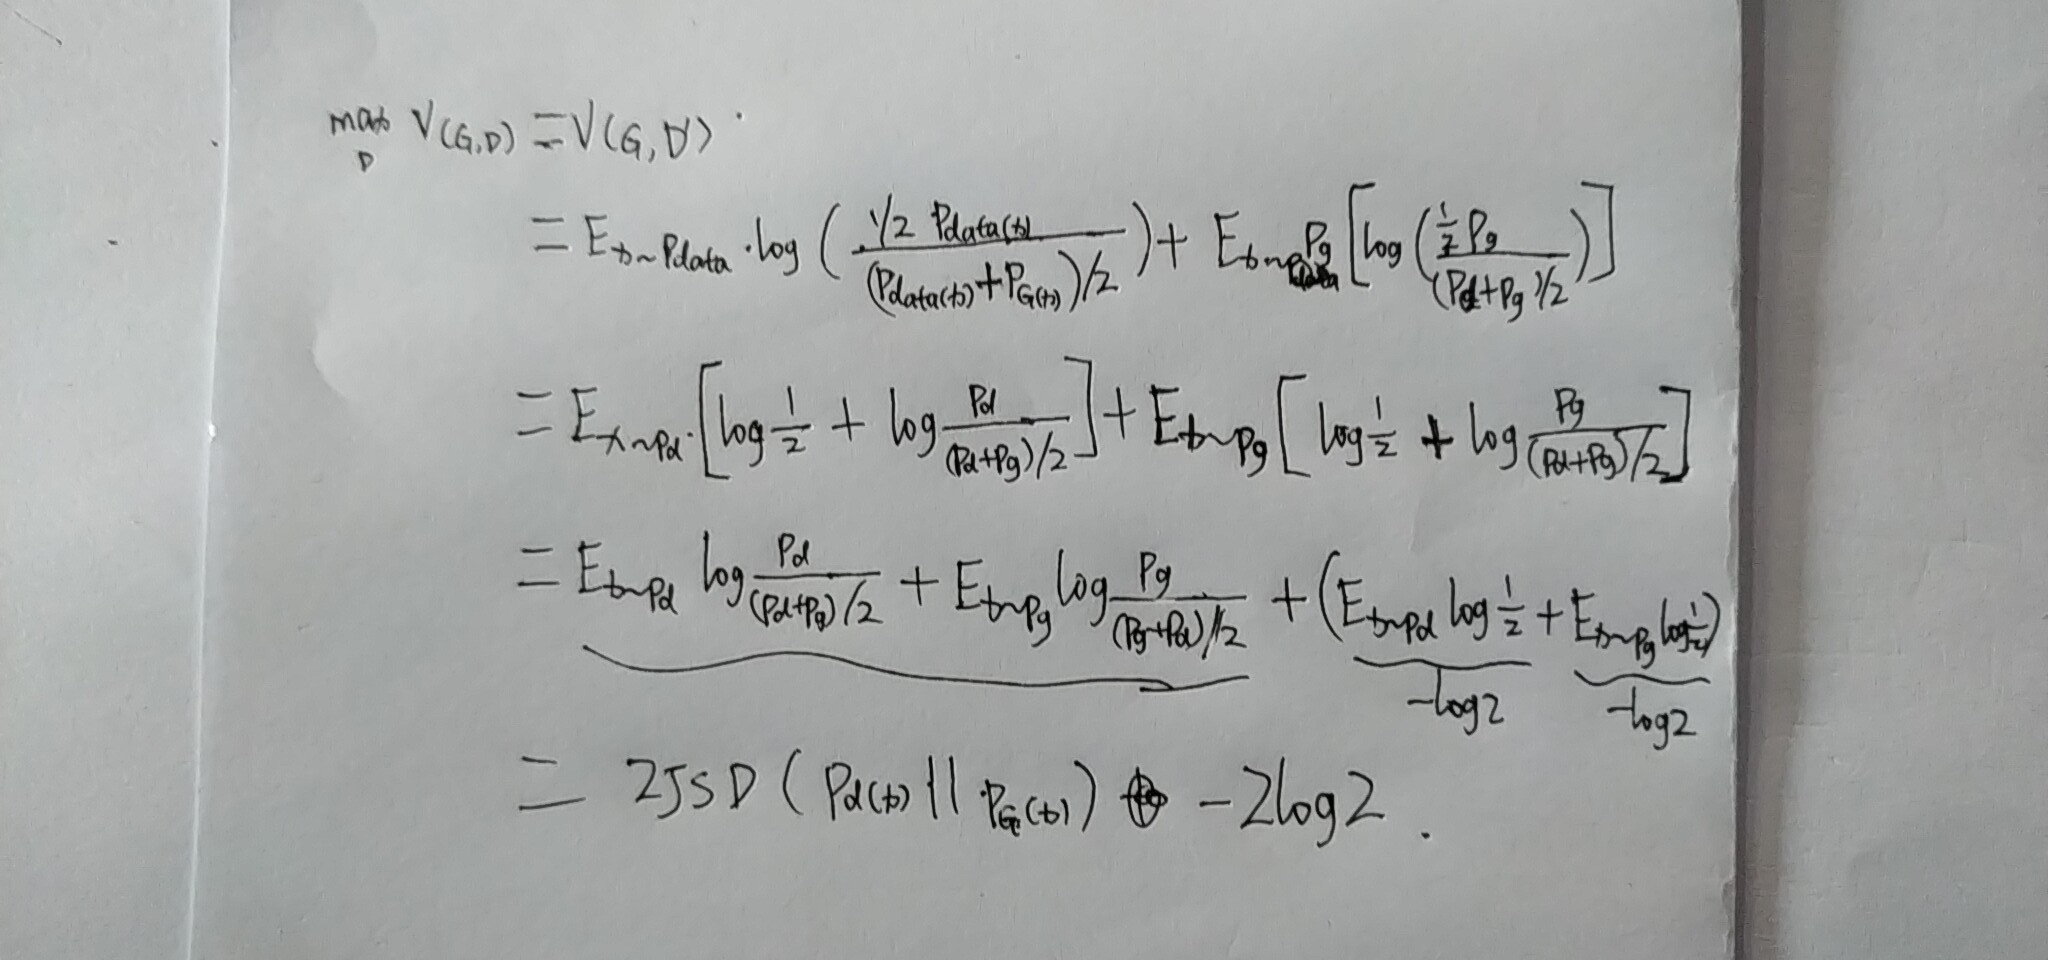 max_D V(G,D) = V(G,D')
= E_{x~Pdata} · log ( 1/2 Pdata(x) / (Pdata(x)+PG(x))/2 ) + E_{x~Pg} [ log ( 1/2 Pg / (Pd+Pg)/2 ) ]
= E_{x~Pd} · [ log 1/2 + log Pd / (Pd+Pg)/2 ] + E_{x~Pg} [ log 1/2 + log Pg / (Pd+Pg)/2 ]
= E_{x~Pd} log Pd / (Pd+Pg)/2 + E_{x~Pg} log Pg / (Pg+Pd)/2 + ( E_{x~Pd} log 1/2 + E_{x~Pg} log 1/2 )
-log2 -log2
= 2JSD ( Pd(x) || PG(x) ) - 2log2 .